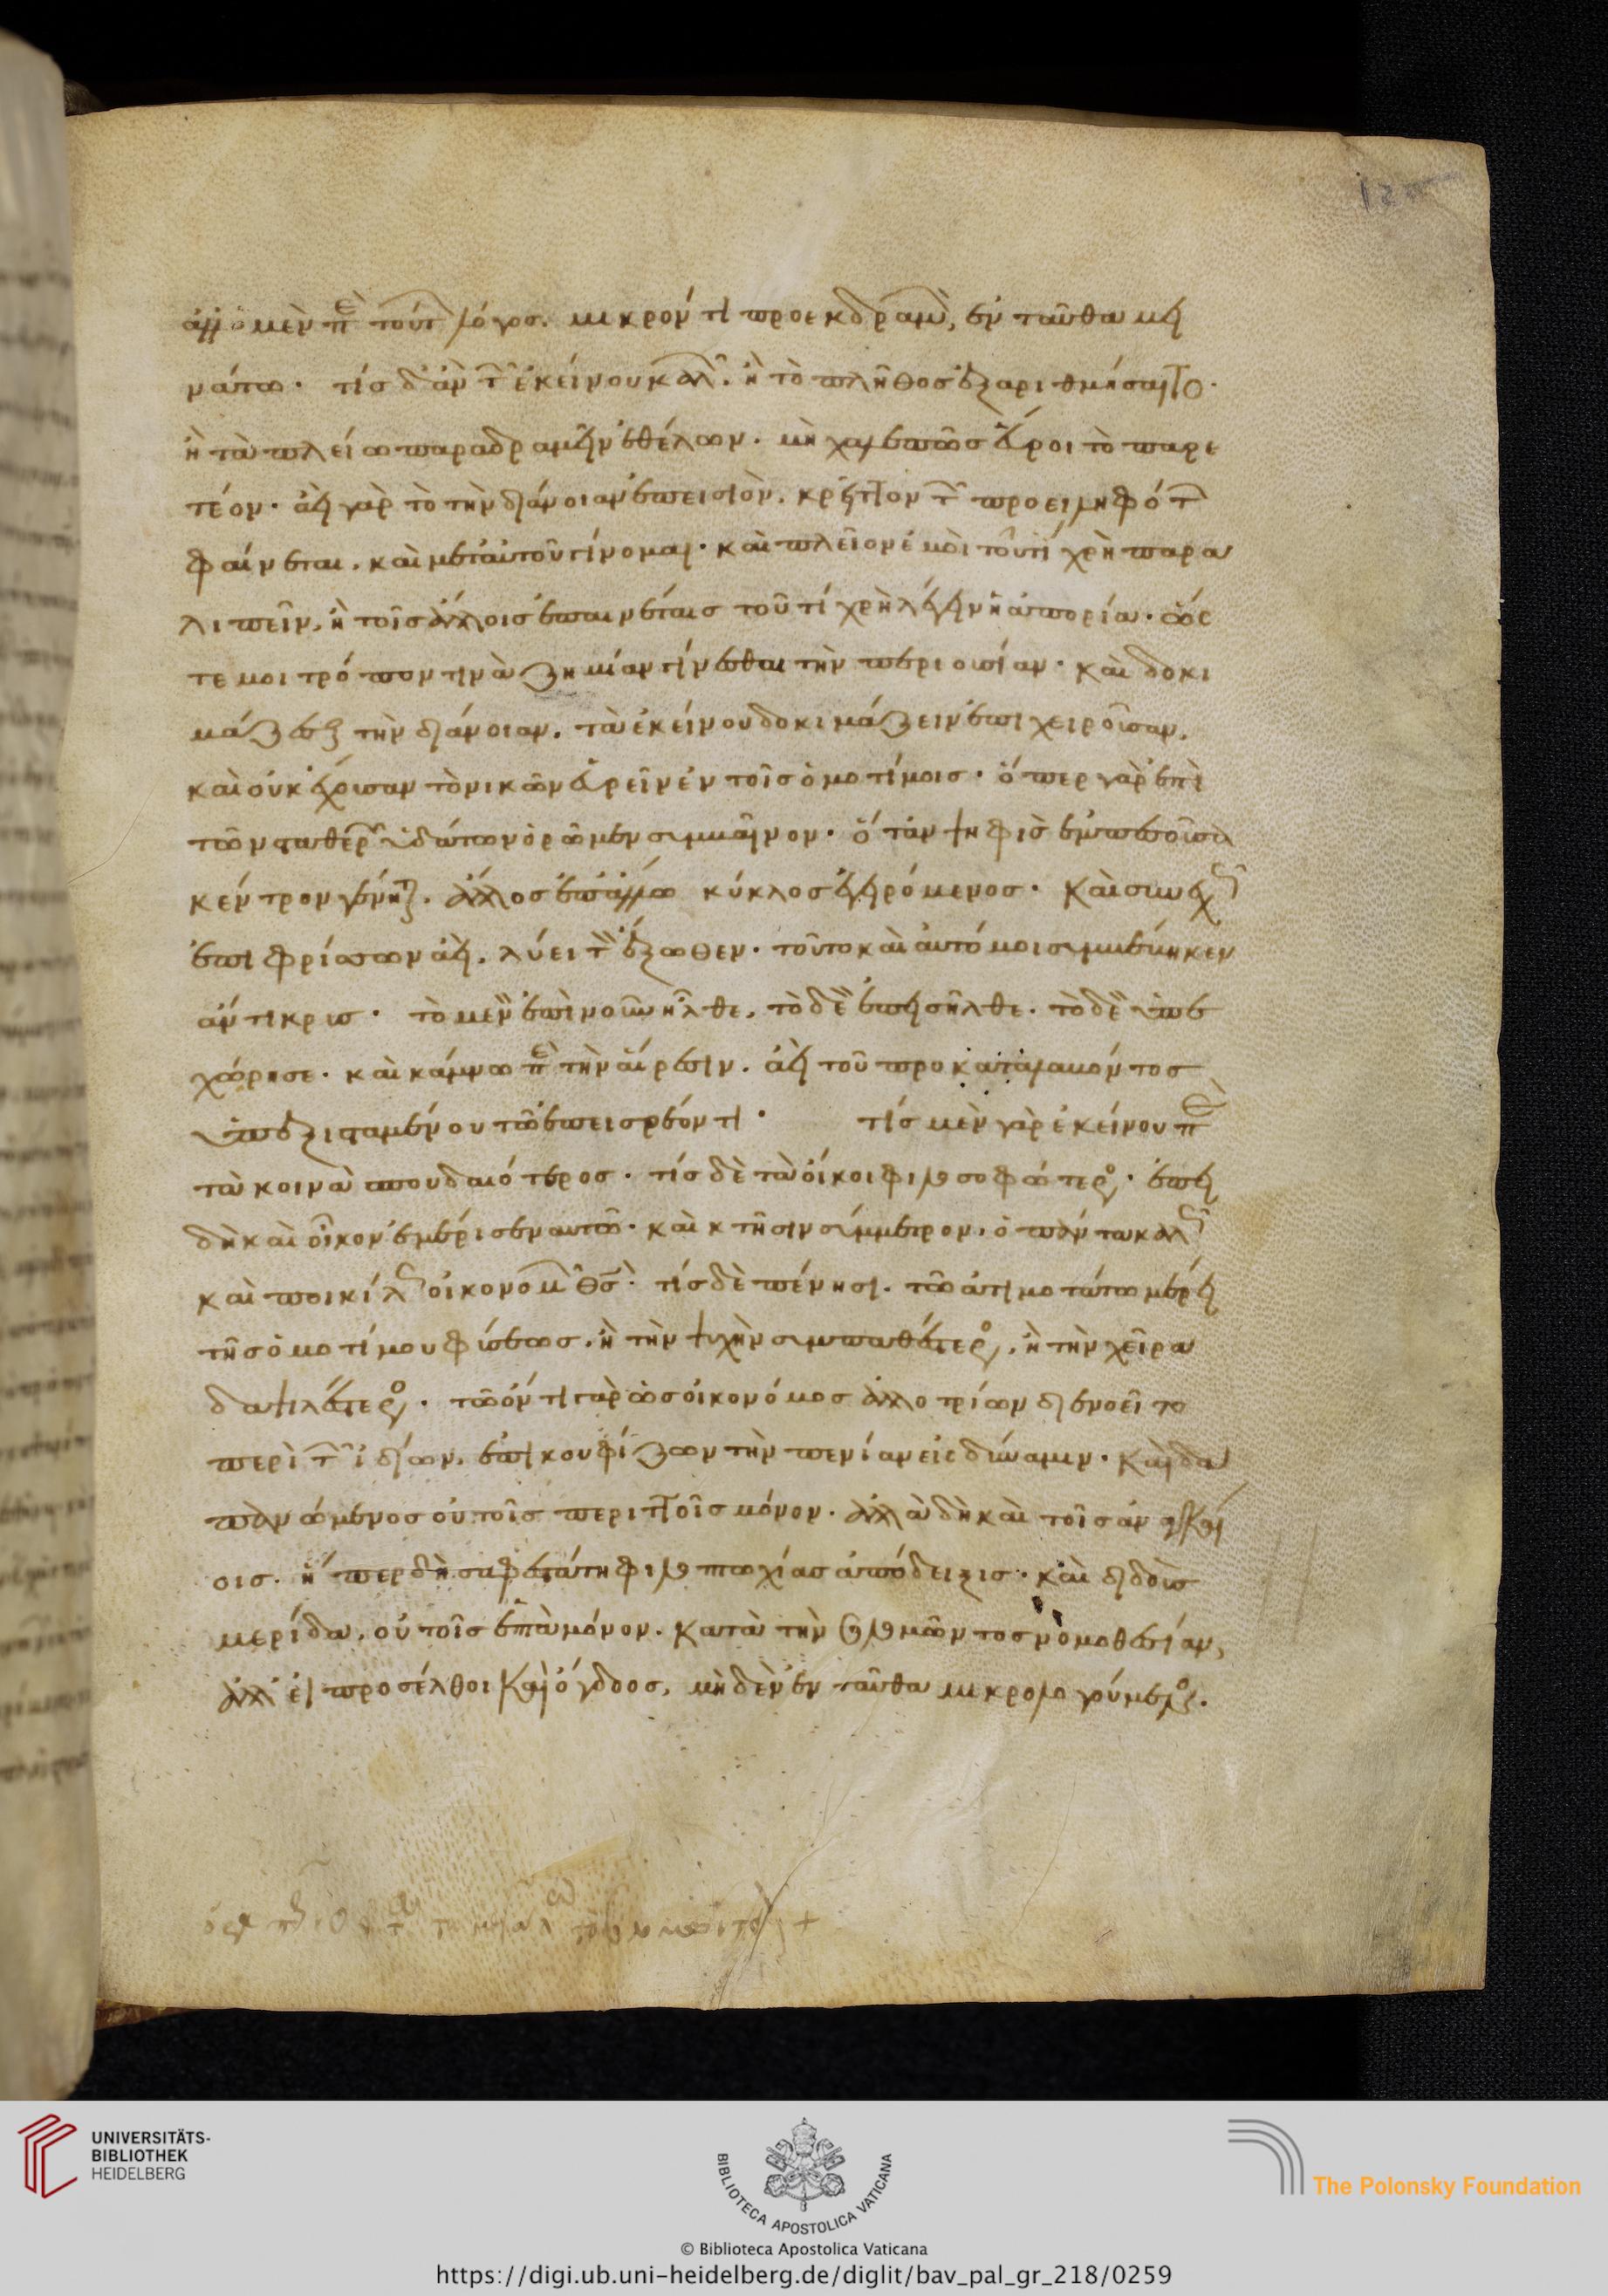 ἀλλ' ὁ μὲν περὶ τούτων λόγος. μικρόν τι προεκδραμὼν, ἐνταῦθα μει
νάτω. τίς δ' ἂν τῶν ἐκείνου καλῶν. ἢ τὸ πλῆθος ἐξαριθμήσαιτο.
ἢ τὰ πλείω παραδραμεῖν ἐθέλων. μὴ χαλεπῶς εὕροι τὸ παρε
τέον. ἀεὶ γὰρ τὸ τὴν διάνοιαν ἐπεισιὸν, κρεῖττον τῶν προειληφότων
φαίνεται. καὶ μετ' αὐτοῦ γίνομαι. καὶ πλεῖον ἐμοὶ τοῦ τί χρὴ παρα
λιπεῖν, ἢ τοῖς ἄλλοις ἐπαινέταις τοῦ τί χρὴ λέγειν ἡ ἀπορία. ὥς
τε μοι τρόπον τινὰ ζημίαν γίνεσθαι τὴν περιουσίαν. καὶ δοκι
μάζεσθαι τὴν διάνοιαν. τὰ ἐκείνου δοκιμάζειν ἐπιχειροῦσαν,
καὶ οὐκ ἔχουσαν τὸ νικῶν εὑρεῖν ἐν τοῖς ὁμοτίμοις. ὅπερ γὰρ ἐπὶ
τῶν σταθερῶν ὑδάτων ὁρῶμεν συμβαῖνον. ὅταν ψηφὶς ἐμπεσοῦσα
κέντρον γένηται. ἄλλος ἐπ' ἄλλω κύκλος ἐγειρόμενος. καὶ συνεχῶς
ἐπιφρίσσων ἀεὶ, λύει τὸν ἔξωθεν. τοῦτο καὶ αὐτό μοι συμβέβηκεν
ἄντικρυς. τὸ μὲν ἐπὶ νοῦν ἦλθε, τὸ δὲ ἐπεισῆλθε. τὸ δὲ ὑπε
χώρησε. καὶ κάμνω περὶ τὴν αἵρεσιν. ἀεὶ τοῦ προκαταλαβόντος
ὑπεξισταμένου τῶ ἐπεισρέοντι. τίς μὲν γὰρ ἐκείνου περὶ
τὰ κοινὰ σπουδαιότερος. τίς δὲ τὰ οἴκοι φιλοσοφώτερος. ἐπεὶ
δὴ καὶ οἶκον ἐμέρισεν αυτῶ. καὶ κτῆσιν σύμμετρον, ὁ πάντα καλῶς
καὶ ποικίλως οἰκονομῶν θς̅. τίς δὲ πένησι. τῶ ἀτιμοτάτω μέρει
τῆς ὁμοτίμου φύσεως, ἢ τὴν ψυχὴν συμπαθέστερος, ἢ τὴν χεῖρα
δαψιλέστερος. τῶ ὄντι γὰρ ὡς οἰκονόμος ἀλλοτρίων διενοεῖτο
περὶ τῶν ἰδίων, ἐπικουφίζων τὴν πενίαν εἰς δύναμιν. καὶ δα
πανώμενος οὐ τοῖς περιττοῖς μόνον. ἀλλὰ δὴ καὶ τοῖς ἀναγκαί
οις. ἥπερ δὴ σαφεστάτη φιλοπτωχίας ἀπόδειξις. καὶ διδοὺς
μερίδα, οὐ τοῖς ἑπτὰ μόνον. κατὰ τὴν σολομῶντος νομοθεσίαν,
ἀλλ' εἰ προσέλθοι καὶ ὄγδοος, μηδὲν ἐνταῦθα μικρολογούμενος.
UNIVERSITÄTS-
BIBLIOTHEK
HEIDELBERG
BIBLIOTECA APOSTOLICA VATICANA
The Polonsky Foundation
© Biblioteca Apostolica Vaticana
https://digi.ub.uni-heidelberg.de/diglit/bav_pal_gr_218/0259